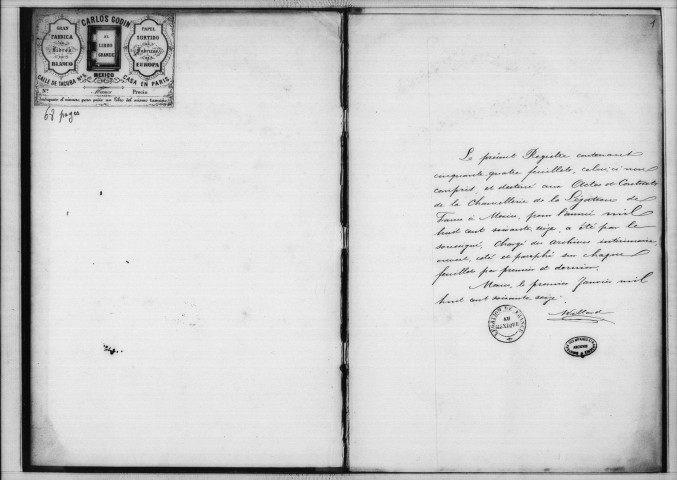 CARLOS GODIN
GRAN
FABRICA
Libros
BLANCO
AL
LIBRO
GRANDE
PAPEL
SURTIDO
Fabricas
EUROPA
CALLE DE TACUBA
MEXICO
CASA EN PARIS
Nº
Precio
Indiquese el número para pedir un libro del mismo tamaño
68 pages
1
Le présent Registre contenant
cinquante quatre feuillets, celui-ci non
compris, et destiné aux Actes et Contrats
de la Chancellerie de la Légation de
France à Mexico, pour l'année mil
huit cent soixante seize, a été par le
soussigné, Chargé des archives
ouvert, coté et paraphé sur chaque
feuillet par premier et dernier.
Mexico, le premier Janvier mil
huit cent soixante seize.
LÉGATION DE FRANCE
AU
MEXIQUE
ARCHIVES